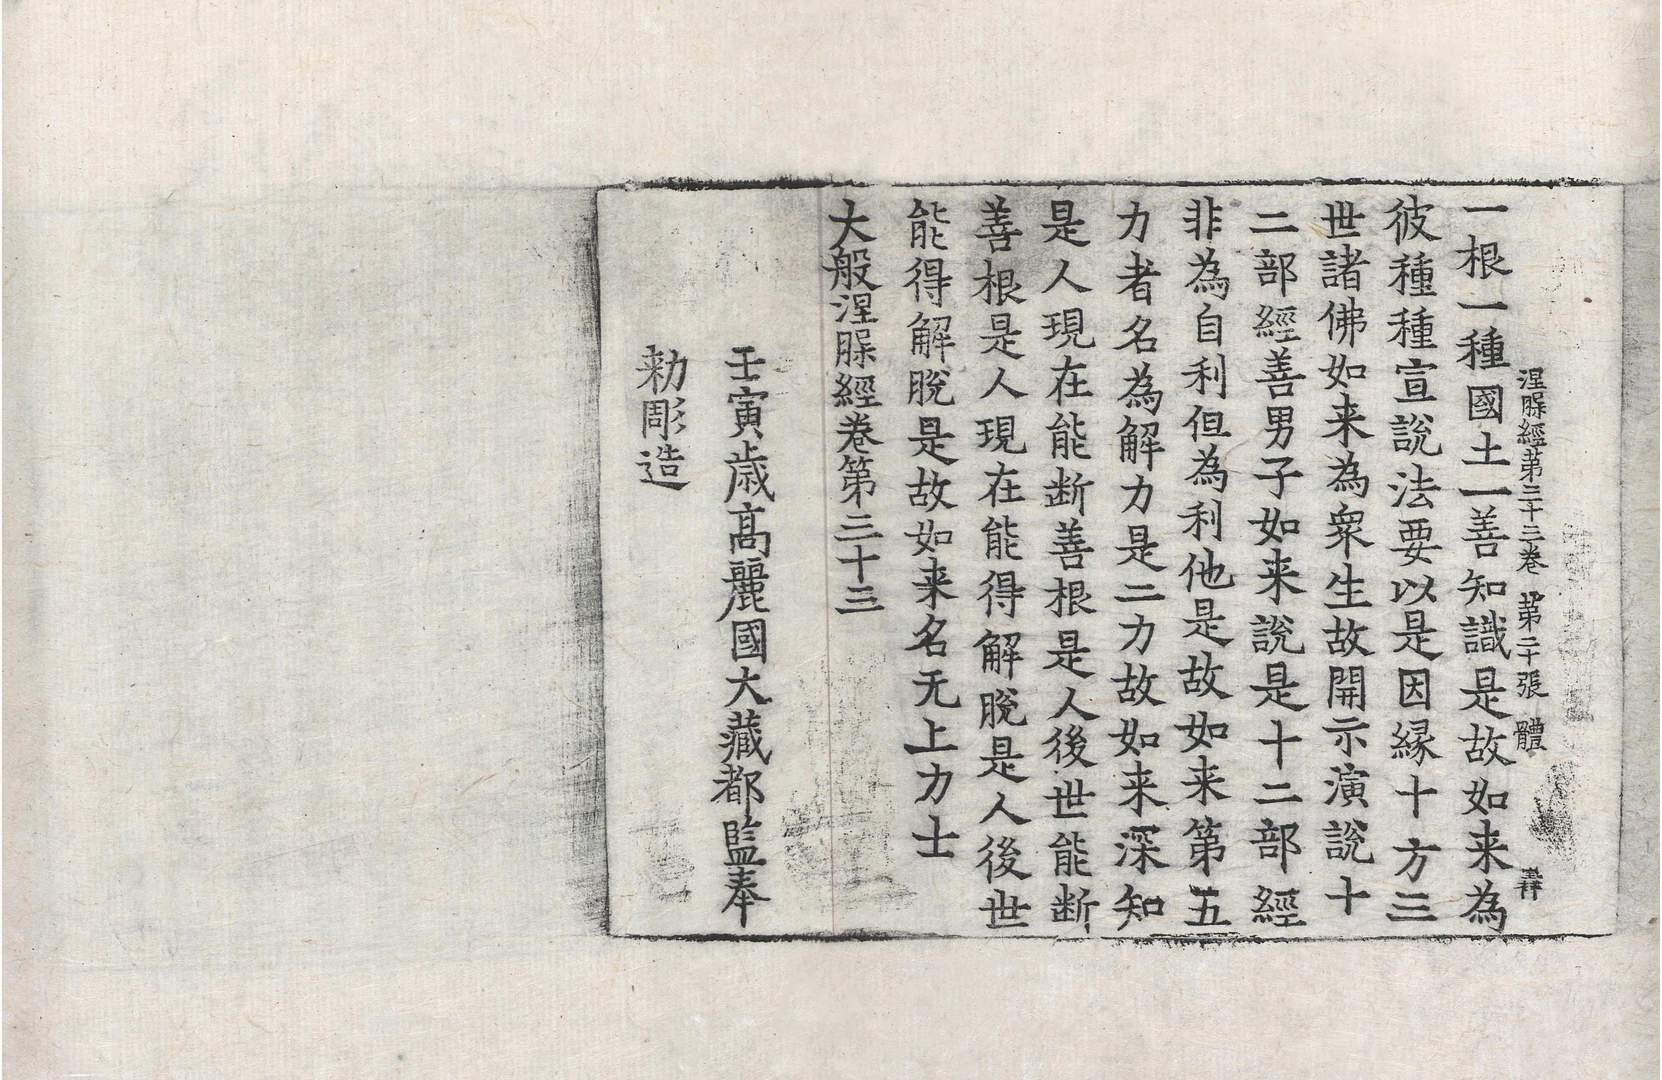 涅槃經第三十三卷 第二十張 體
一根一種國土一善知識是故如来為
彼種種宣說法要以是因縁十方三
世諸佛如来為衆生故開示演說十
二部經善男子如来說是十二部經
非為自利但為利他是故如来第五
力者名為解力是二力故如来深知
是人現在能断善根是人後世能断
善根是人現在能得解脫是人後世
能得解脫是故如来名无上力士
大般涅槃經卷第三十三
壬寅歳髙麗國大藏都監奉
勑彫造